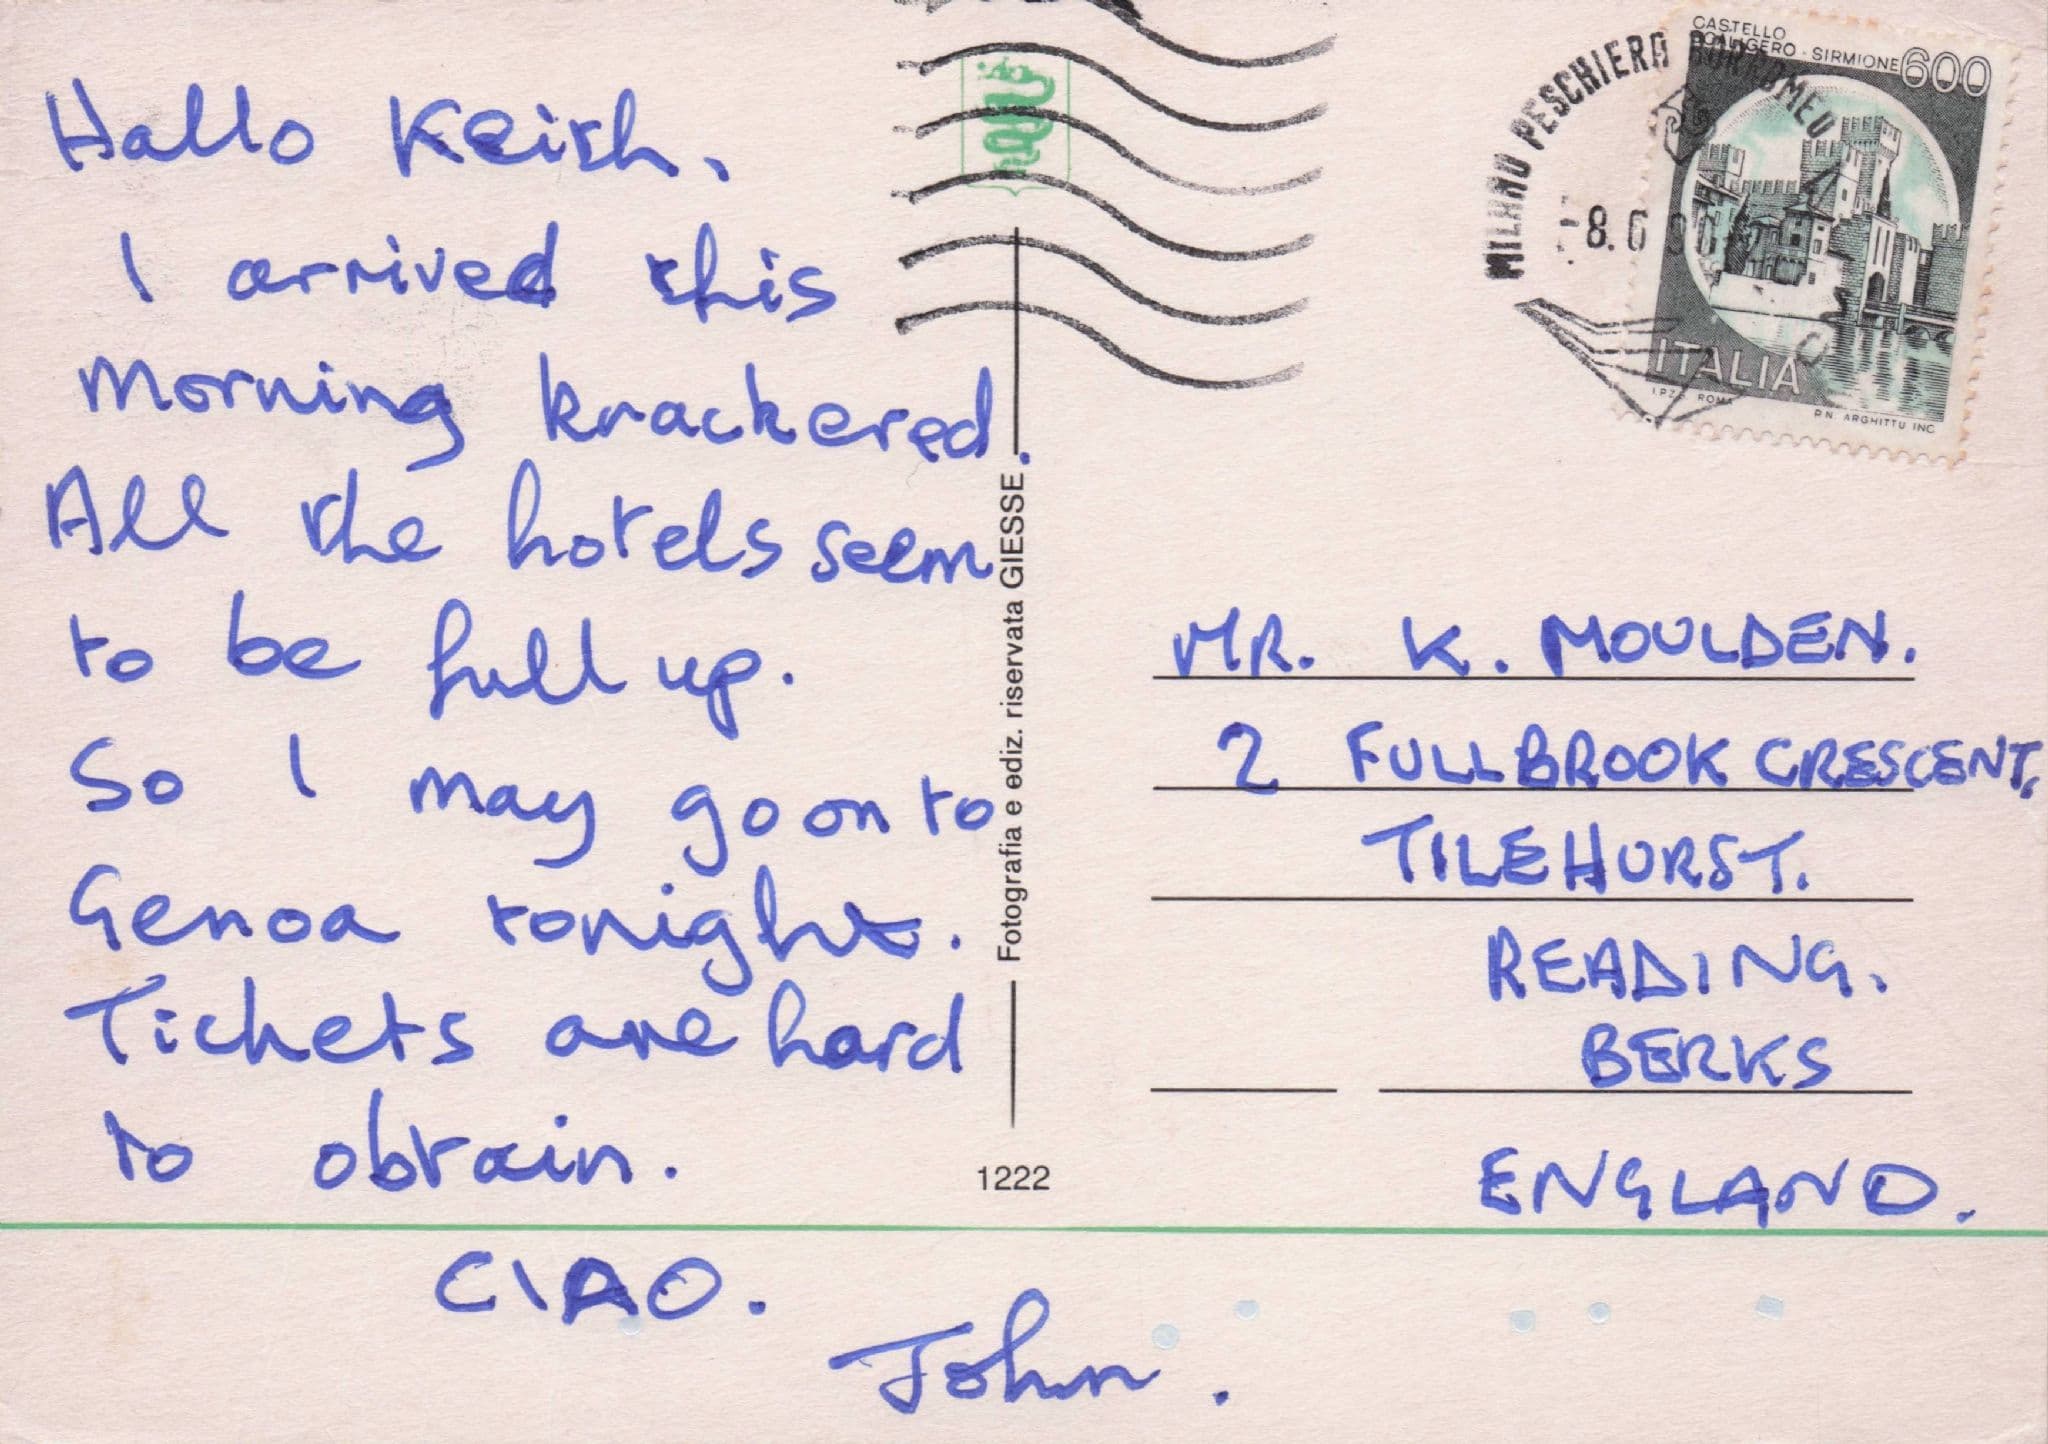 Hallo Keith.
I arrived this
morning knackered.
All the hotels seem
to be full up.
So I may go on to
Genoa tonight.
Tickets are hard
to obtain.
CIAO.
John.
Fotografia e ediz. riservata GIESSE
1222
MILANO PESCHIERA BORROMEO
8.6
CASTELLO
SCALIGERO - SIRMIONE 600
ITALIA
I.P.Z.S. ROMA P.N. ARGHITTU INC
MR. K. MOULDEN.
2 FULLBROOK CRESCENT,
TILEHURST.
READING.
BERKS
ENGLAND.